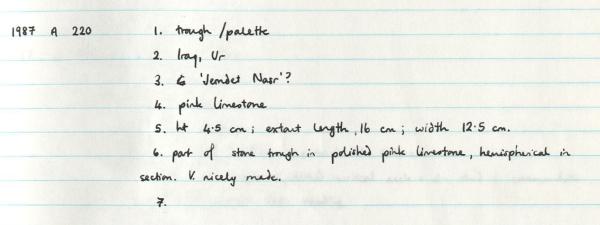 1987 A 220 1. trough / palette
2. Iraq, Ur
3. 'Jemdet Nasr'?
4. pink limestone
5. ht 4.5 cm; extant length, 16 cm; width 12.5 cm.
6. part of stone trough in polished pink limestone, hemispherical in
section. V. nicely made.
7.